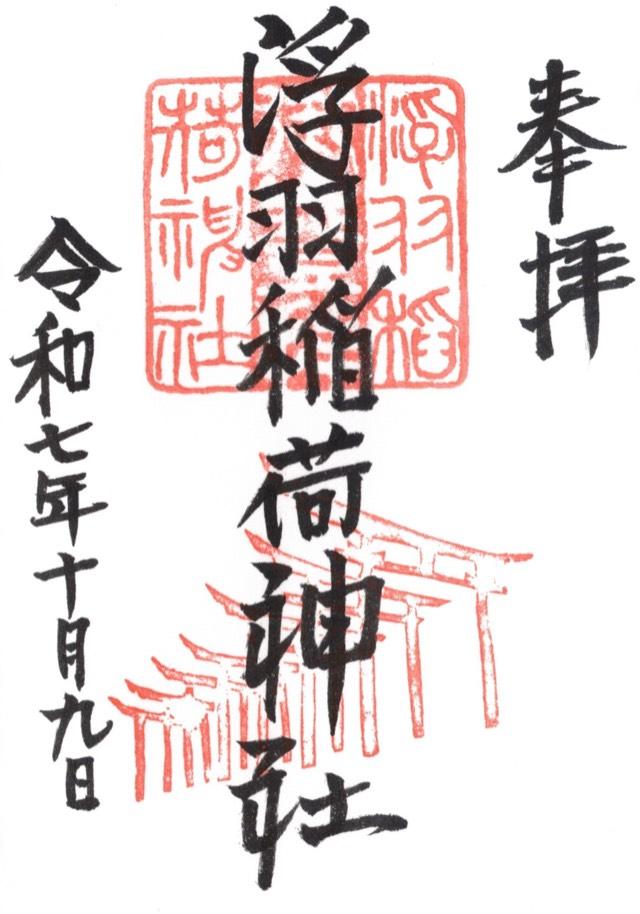 奉拝
浮羽稲荷神社
浮羽稲
荷神社
令和七年十月九日